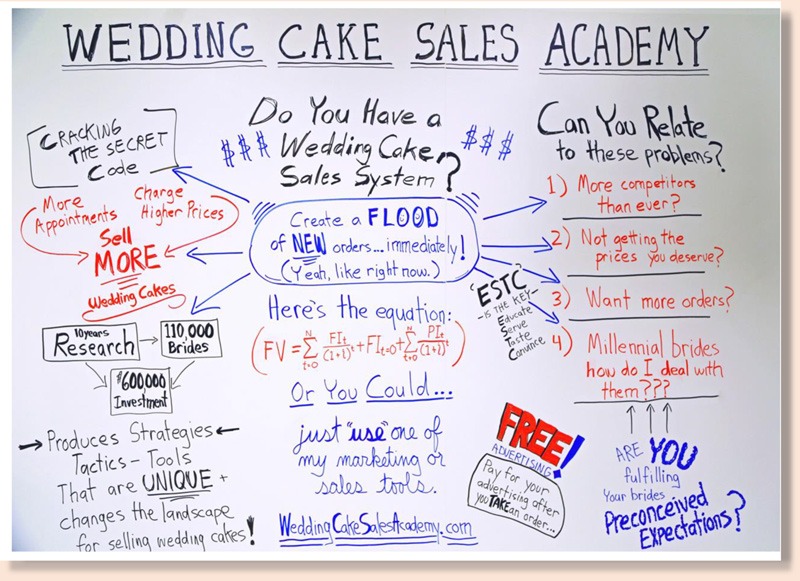 WEDDING CAKE SALES ACADEMY
CRACKING
THE SECRET
Code
More
Appointments
Charge
Higher Prices
Sell
MORE
Wedding Cakes
10 years
Research
110,000
Brides
$600,000
Investment
Produces Strategies
Tactics - Tools
That are UNIQUE +
changes the landscape
for selling wedding cakes!
Do You Have a
$$$ Wedding Cake $$$
Sales System?
Create a FLOOD
of NEW orders... immediately!
(Yeah, like right now.)
Here's the equation:
Or You Could...
just "use" one of
my marketing or
sales tools.
WeddingCakeSalesAcademy.com
"ESTC"
-IS THE KEY-
Educate
Serve
Taste
Convince
FREE!
ADVERTISING
Pay for your
advertising after
you TAKE an order...
Can You Relate
to these problems?
1) More competitors
than ever?
2) Not getting the
prices you deserve?
3) Want more orders?
4) Millennial brides
how do I deal with
them???
ARE YOU
fulfilling
Your brides
Preconceived
Expectations?